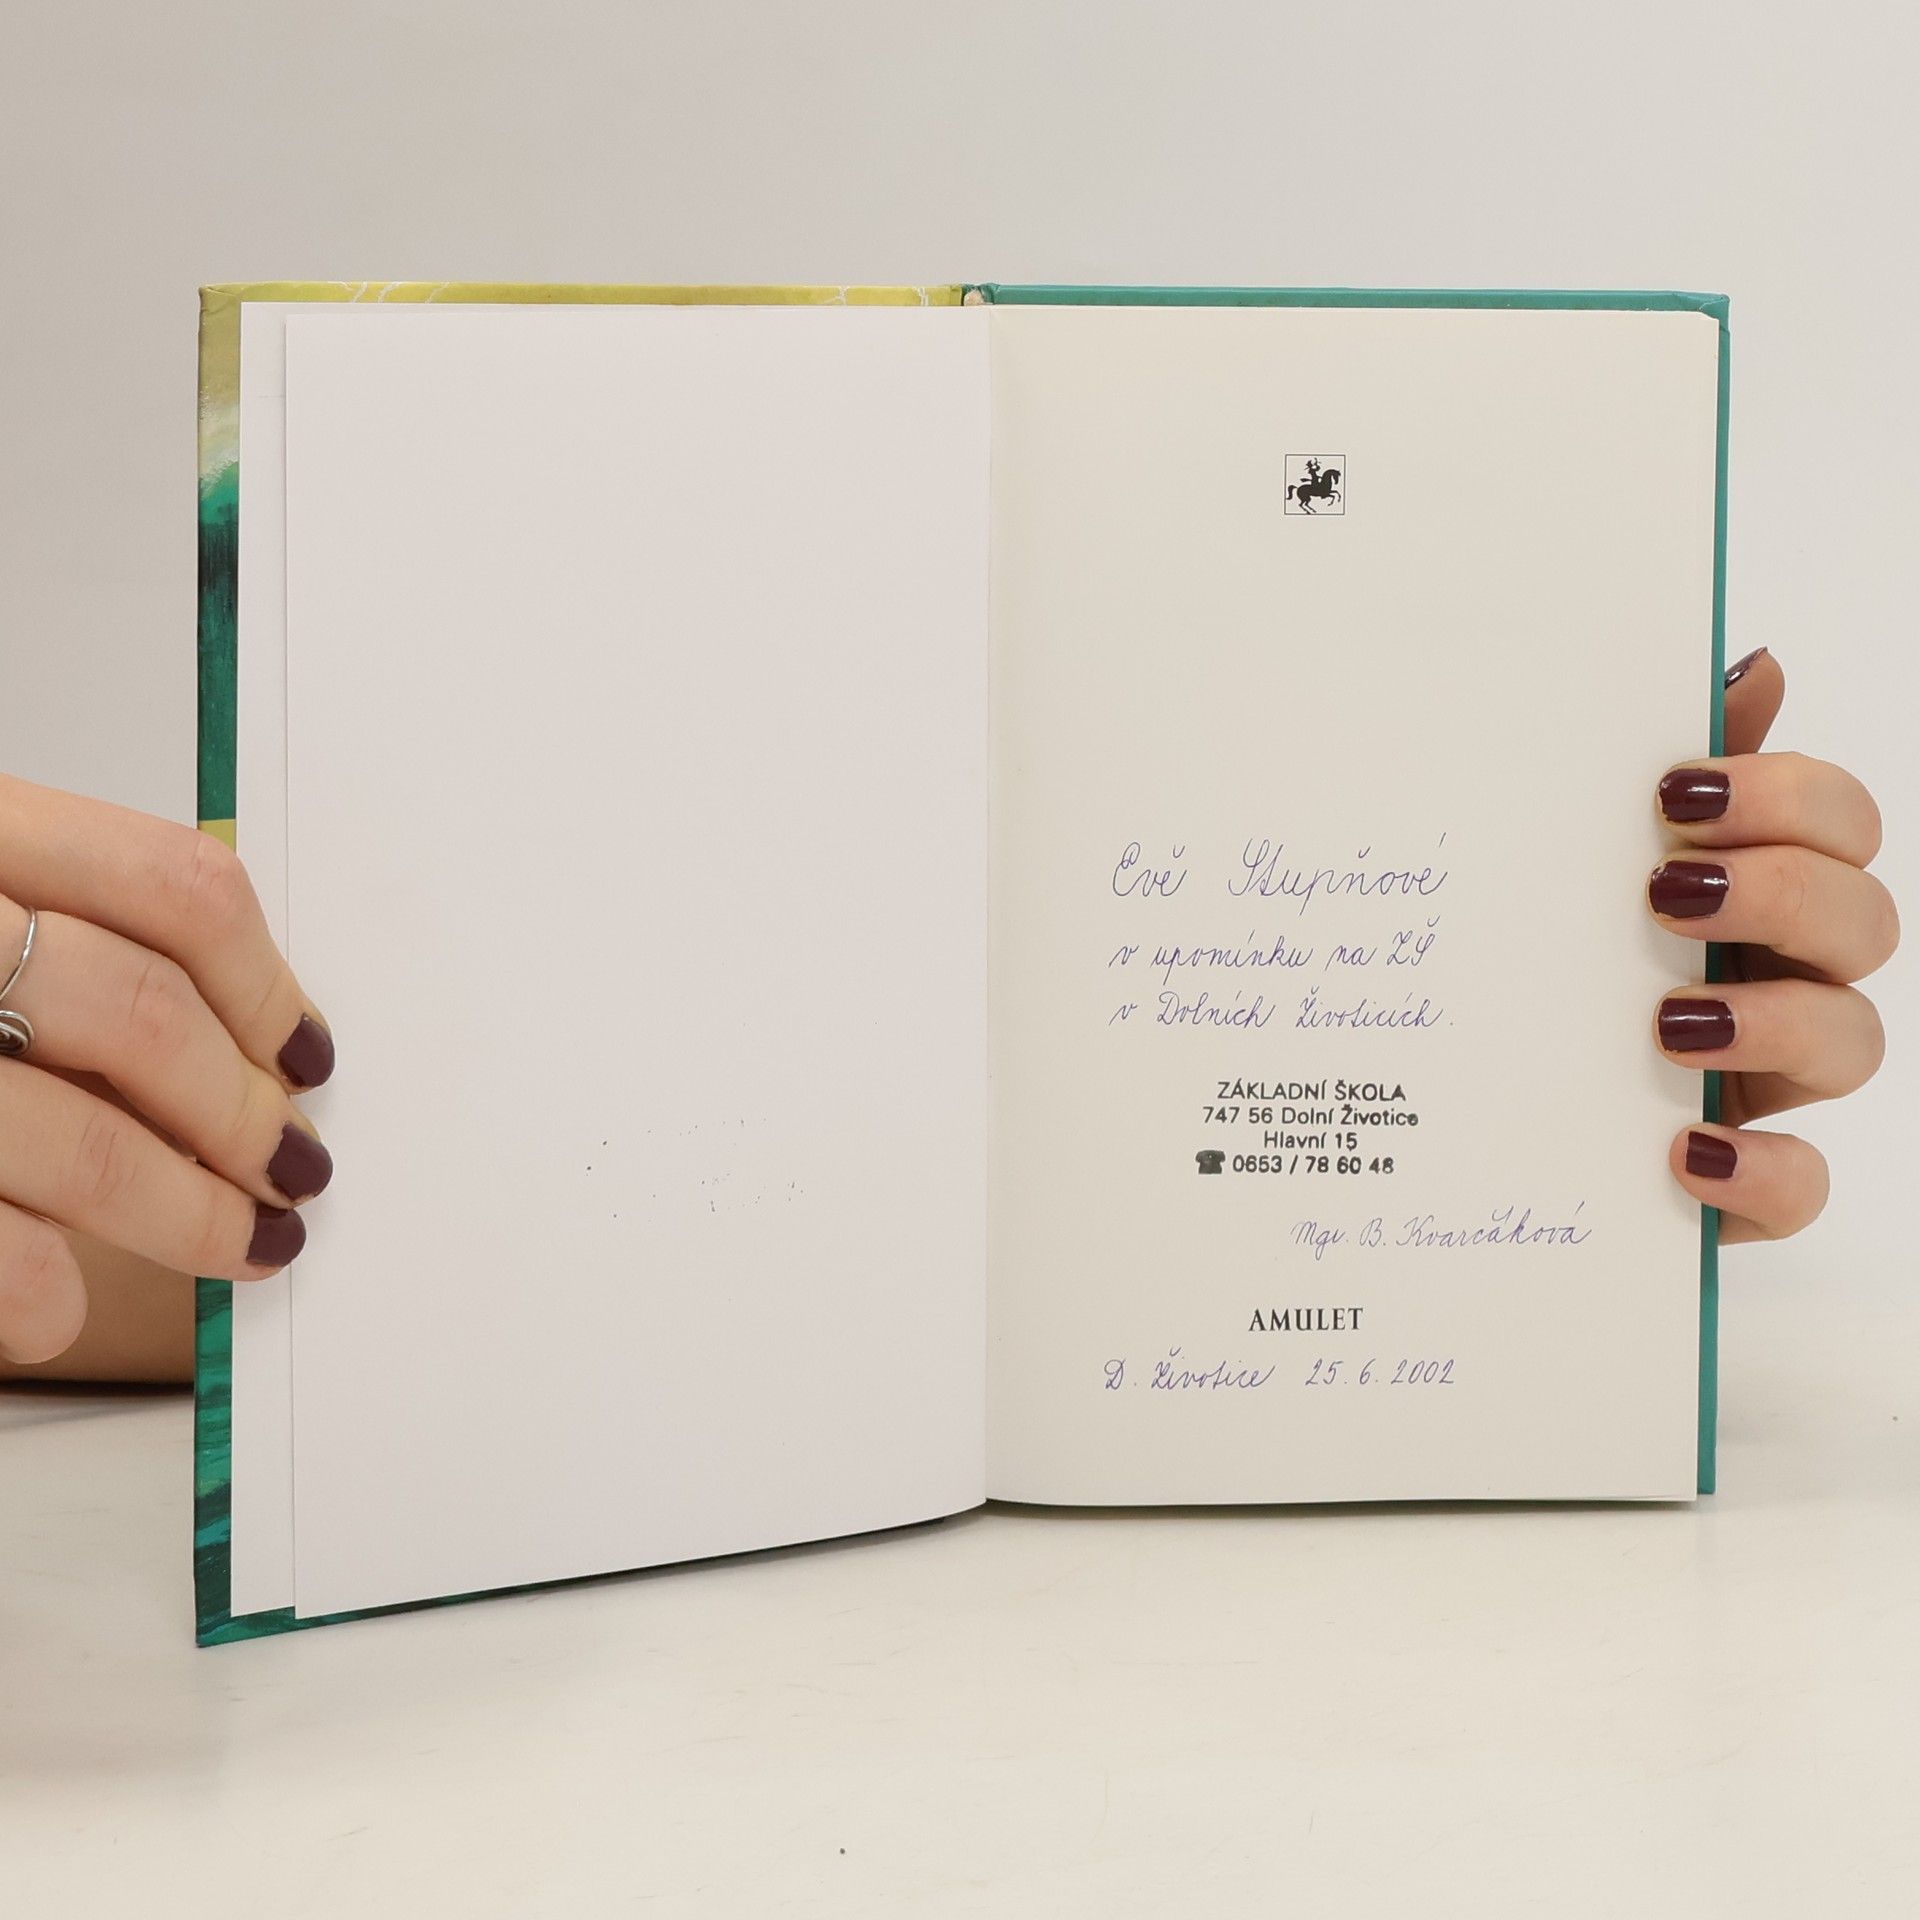 Evě Stupňové
v upomínku na ZŠ
v Dolních Životicích.
ZÁKLADNÍ ŠKOLA
747 56 Dolní Životice
Hlavní 15
☎ 0653 / 78 60 48
Mgr. B. Kvarčáková
AMULET
D. Životice 25. 6. 2002